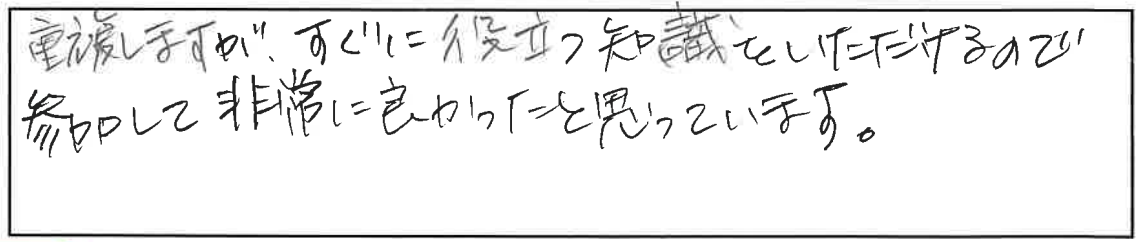 重複しますが、すぐに役立つ知識をいただけるので
参加して非常に良かったと思っています。